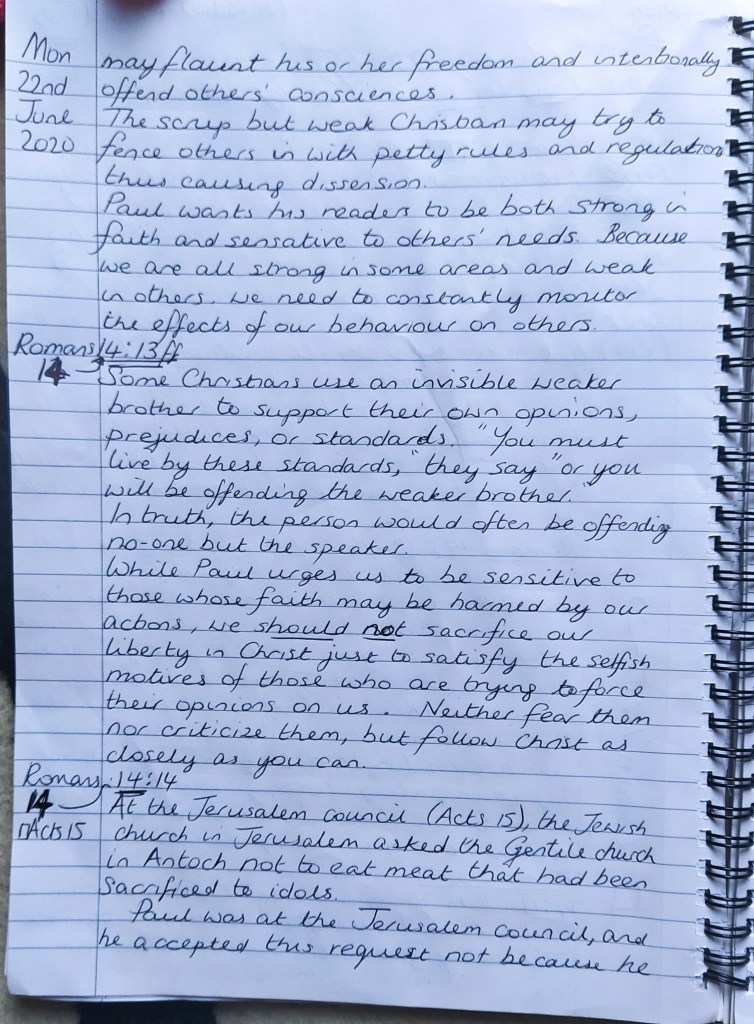 Mon may flaunt his or her freedom and intentionally
22nd offend others' consciences.
June The scrup but weak Christian may try to
2020 fence others in with petty rules and regulation
thus causing dissension.
Paul wants his readers to be both strong in
faith and sensative to others' needs. Because
we are all strong in some areas and weak
in others. we need to constantly monitor
the effects of our behaviour on others.
Romans 14:13ff
14 Some Christians use an invisible weaker
brother to support their own opinions,
prejudices, or standards. "You must
live by these standards," they say "or you
will be offending the weaker brother."
In truth, the person would often be offending
no-one but the speaker.
While Paul urges us to be sensitive to
those whose faith may be harmed by our
actions, we should not sacrifice our
liberty in Christ just to satisfy the selfish
motives of those who are trying to force
their opinions on us. Neither fear them
nor criticize them, but follow Christ as
closely as you can.
Romans 14:14
14 At the Jerusalem council (Acts 15), the Jewish
Acts 15 church in Jerusalem asked the Gentile church
in Antoch not to eat meat that had been
sacrificed to idols.
Paul was at the Jerusalem council, and
he accepted this request not because he